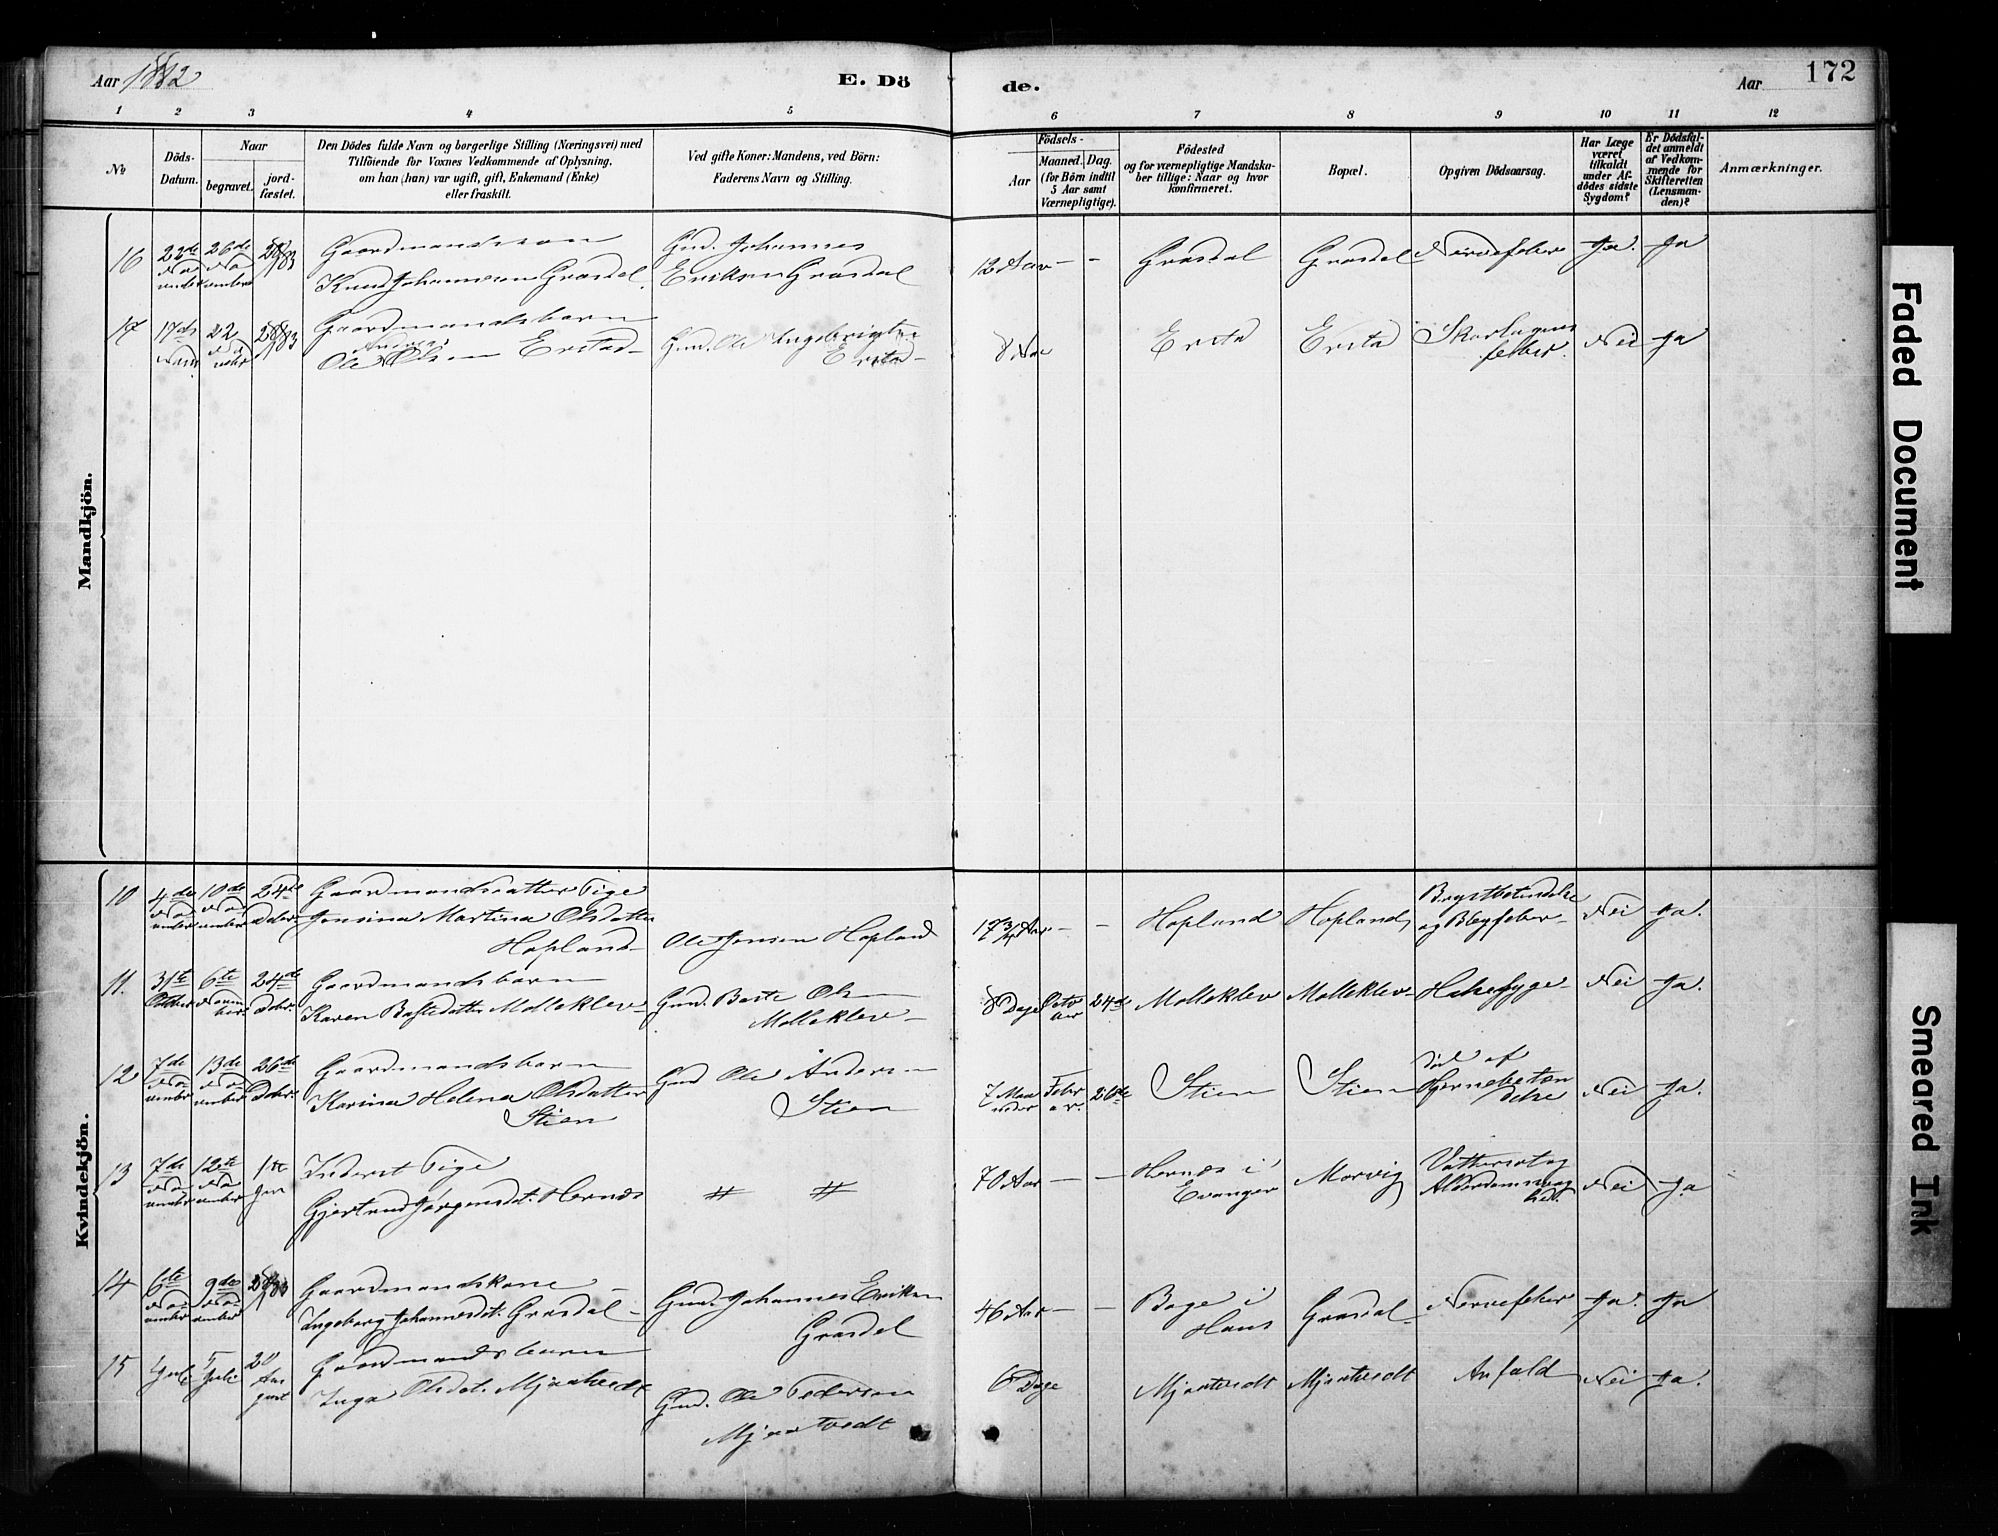 Aar 1882
E. Dö
de.
Aar
172
1 2 3 4 5 6 7 8 9 10 11 12
No
Döds-
Datum.
Naar
begravet.
jord-
fæstet.
Den Dödes fulde Navn og borgerlige Stilling (Næringsvei) med
Tilföiende for Voxnes Vedkommende af Oplysning,
om han (hun) var ugift, gift, Enkemand (Enke)
eller fraskilt.
Ved gifte Koner: Mandens, ved Börn:
Faderens Navn og Stilling.
Födsels-
Aar
Maaned. Dag.
(for Börn indtil
5 Aar samt
Værnepligtige).
Födested
og for værnepligtige Mandska-
ber tillige: Naar og hvor
konfirmeret.
Bopæl.
Opgiven Dödsaarsag.
Har Læge
været
tilkaldt
under Af-
dödes sidste
Sygdom?
Er Dödsfal-
det anmeldt
af Vedkom-
mende for
Skifteretten
(Lensman-
den)?
Anmærkninger.
Mandkjön.
16
26de
Gaardmandssøn
Knud Johannesen Grasdal
Gmd. Johannes
Eriksen Grasdal
12 Aar - -
Grasdal
Grasdal
Nervefeber
Ja.
Ja
17
17de
22
Gaardmandsbarn
Ole Olsen Evstad
Gmd. Ole Ingebrigtsen
8 Aar
Skarlagens
feber.
Nei
Ja
Kvindekjön.
10
4de
10de
24de
Decbr.
Gaardmandsdatter Pige
Jensina Martina Olsdatter
Hopland
Ole Jensen Hopland
17 3/4 Aar - -
Hopland
Hopland
Brystbetændelse
og
Nei
Ja.
11.
31te
Oktober
6te
Novem
ber
24de
Decbr.
Gaardmandsbarn
Karen Bastedatter Molleklev
Gmd. Baste Olsen
Molleklev
8 Dage
24de
Molleklev
Molleklev
Halsesyge
Nei
Ja.
12
7de
13de
26de
Decbr.
Gaardmandsbarn
Karina Helena Olsdatter
Stien
Gmd Ole Andersen
Stien
7 Maa
neder
Febr
ar.
26de
Stien
Stien
Hjernebetæn
delse
Nei
Ja.
13
7de
12te
1ste
Jan
Inderst Pige
Gjertrud Jørgensdt. Hernæs
# #
70 Aar - -
Hernæs i
Evanger
Morvig
Vattersot og
Alderdomssvag
hed.
Nei
Ja
14
6te
9de
Gaardmandskone
Ingeborg Johannesdt. Grasdal
Gmd. Johannes Eriksen
Grasdal
46 Aar - -
Boge i
Hous
Grasdal
Nervefeber
Ja.
Ja
15
Juli
5
Juli
20
Au
gust
Gaardmandsbarn
Inga Olsdt. Mjaatvedt
Gmd. Ole Pedersen
Mjaatvedt
6 Dage
Mjaatvedt
Mjaatvedt
Anfald
Nei
Ja.
Faded Document
Smeared Ink